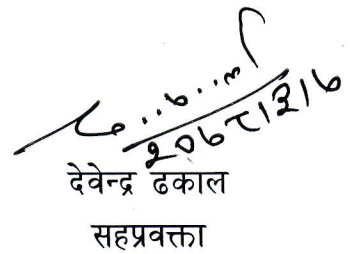 २०७८।३।७
देवेन्द्र ढकाल
सहप्रवक्ता